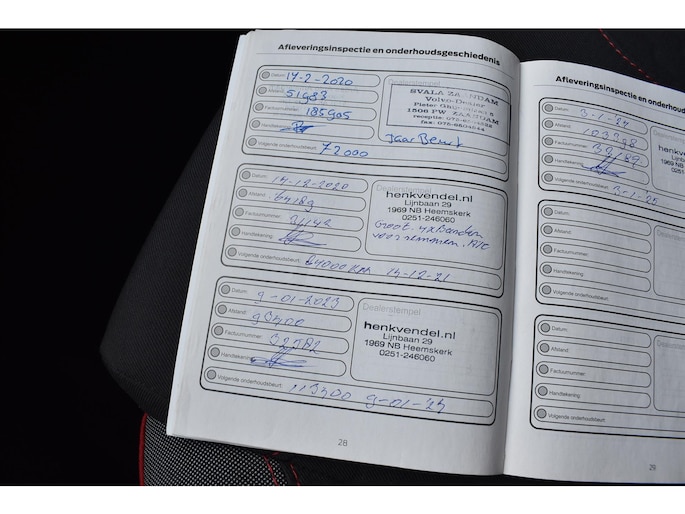 Afleveringsinspectie en onderhoudsgeschiedenis
Datum: 14-2-2020
Afstand: 51983
Factuurnummer: 185905
Handtekening:
Volgende onderhoudsbeurt: 72000
Dealerstempel
SVALA ZAANDAM
Volvo-Dealer
1506 PW ZAANDAM
Jaar Beurt
Datum: 14-12-2020
Afstand: 64189
Factuurnummer:
Handtekening:
Volgende onderhoudsbeurt: 84000 KM 14-12-21
Dealerstempel
henkvendel.nl
Lijnbaan 29
1969 NB Heemskerk
0251-246060
Groot. 4x Banden
voorremmen.
Datum: 9-01-2023
Afstand: 93400
Factuurnummer: 32782
Handtekening:
Volgende onderhoudsbeurt: 113400 9-01-24
Dealerstempel
henkvendel.nl
Lijnbaan 29
1969 NB Heemskerk
0251-246060
28
Afleveringsinspectie en onderhoud
Datum: 3-1-24
Afstand:
Factuurnummer:
Handtekening:
Volgende onderhoudsbeurt: 3-1-25
Dealerstempel
henkvende
Lijnbaan
1969 NB He
0251-24
Datum:
Afstand:
Factuurnummer:
Handtekening:
Volgende onderhoudsbeurt:
Dealerstem
Datum:
Afstand:
Factuurnummer:
Handtekening:
Volgende onderhoudsbeurt:
Dealerstem
29